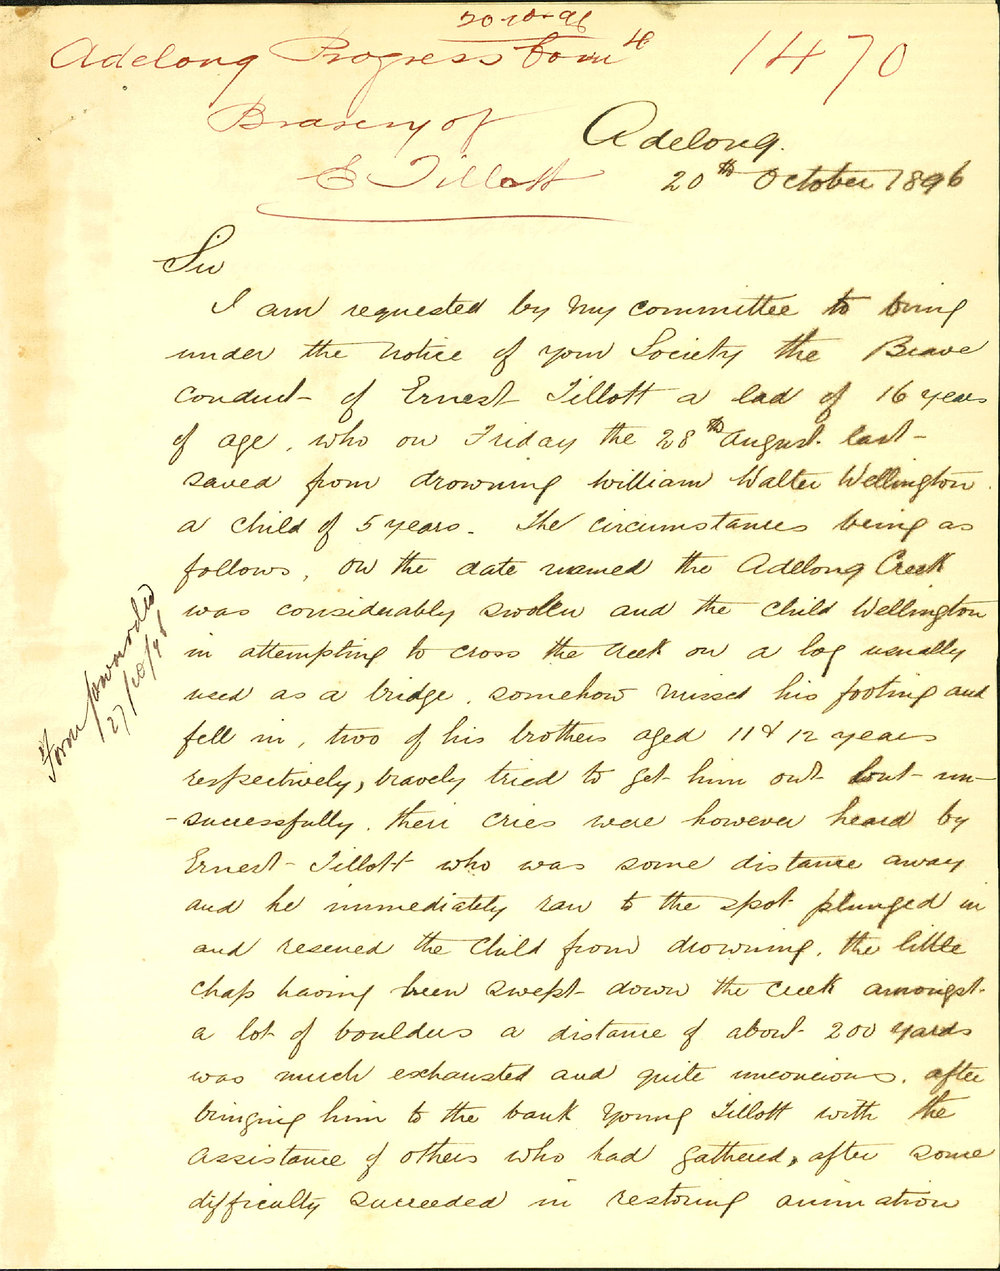 20-10-96
Adelong Progress Comte
1470
Bravery of
E Tillott
Adelong.
20th October 1896
Sir
I am requested by my committee to bring
under the notice of your Society the Brave
conduct of Ernest Tillott a lad of 16 years
of age, who on Friday the 28th August last
saved from drowning William Walter Wellington
a child of 5 years. The circumstances being as
follows, on the date named the Adelong Creek
was considerably swollen and the child Wellington
in attempting to cross the creek on a log usually
used as a bridge, somehow missed his footing and
fell in, two of his brothers aged 11 & 12 years
respectively, bravely tried to get him out but un-
-successfully. their cries were however heard by
Ernest Tillott who was some distance away
and he immediately ran to the spot plunged in
and rescued the child from drowning. the little
chap having been swept down the creek amongst
a lot of boulders a distance of about 200 yards
was much exhausted and quite unconcious. after
bringing him to the bank young Tillott with the
assistance of others who had gathered, after some
difficulty succeeded in restoring animation
Form forwarded
27/10/96